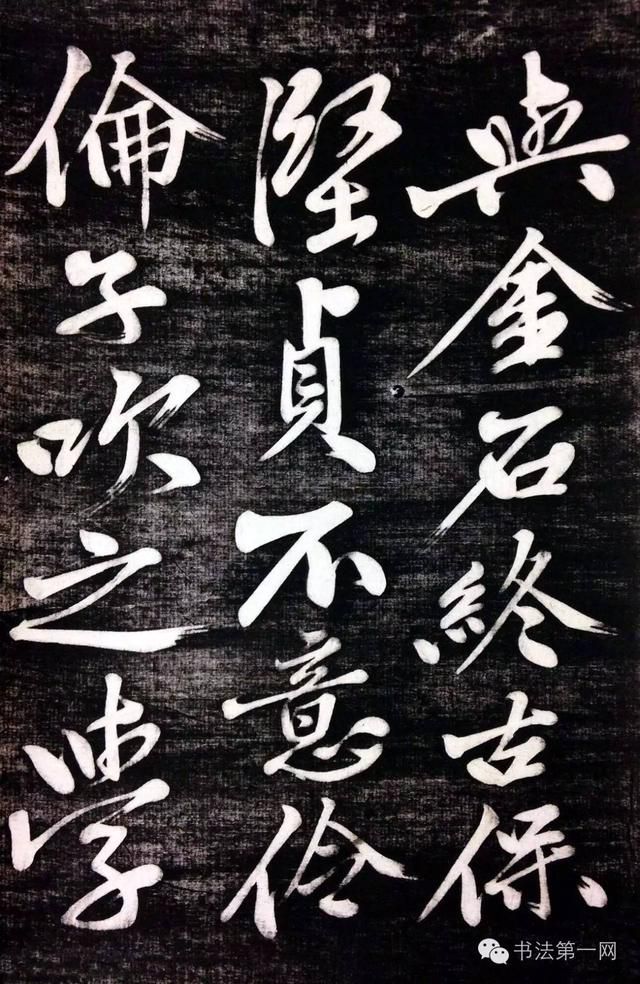 與金石終古保
堅貞不意伶
倫子吹之學
书法第一网